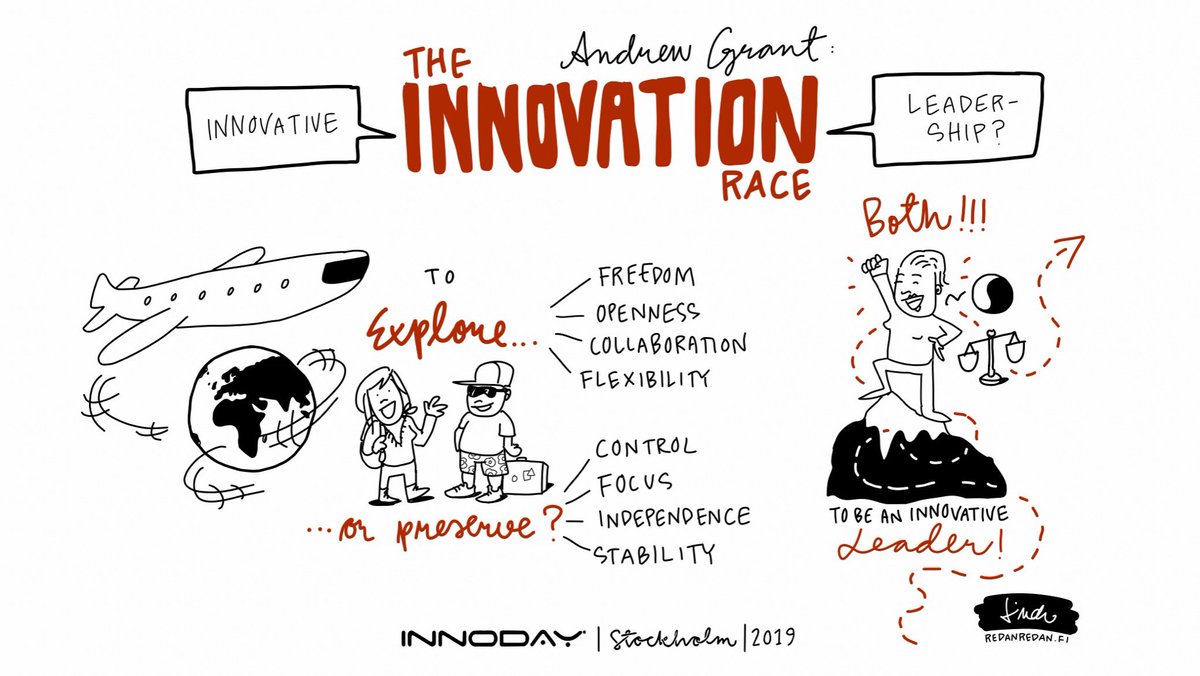 Andrew Grant:
THE
INNOVATION
RACE
INNOVATIVE
LEADER-
SHIP?
TO
Explore...
FREEDOM
OPENNESS
COLLABORATION
FLEXIBILITY
...or preserve?
CONTROL
FOCUS
INDEPENDENCE
STABILITY
Both!!!
TO BE AN INNOVATIVE
Leader!
REDANREDAN.FI
INNODAY | Stockholm | 2019